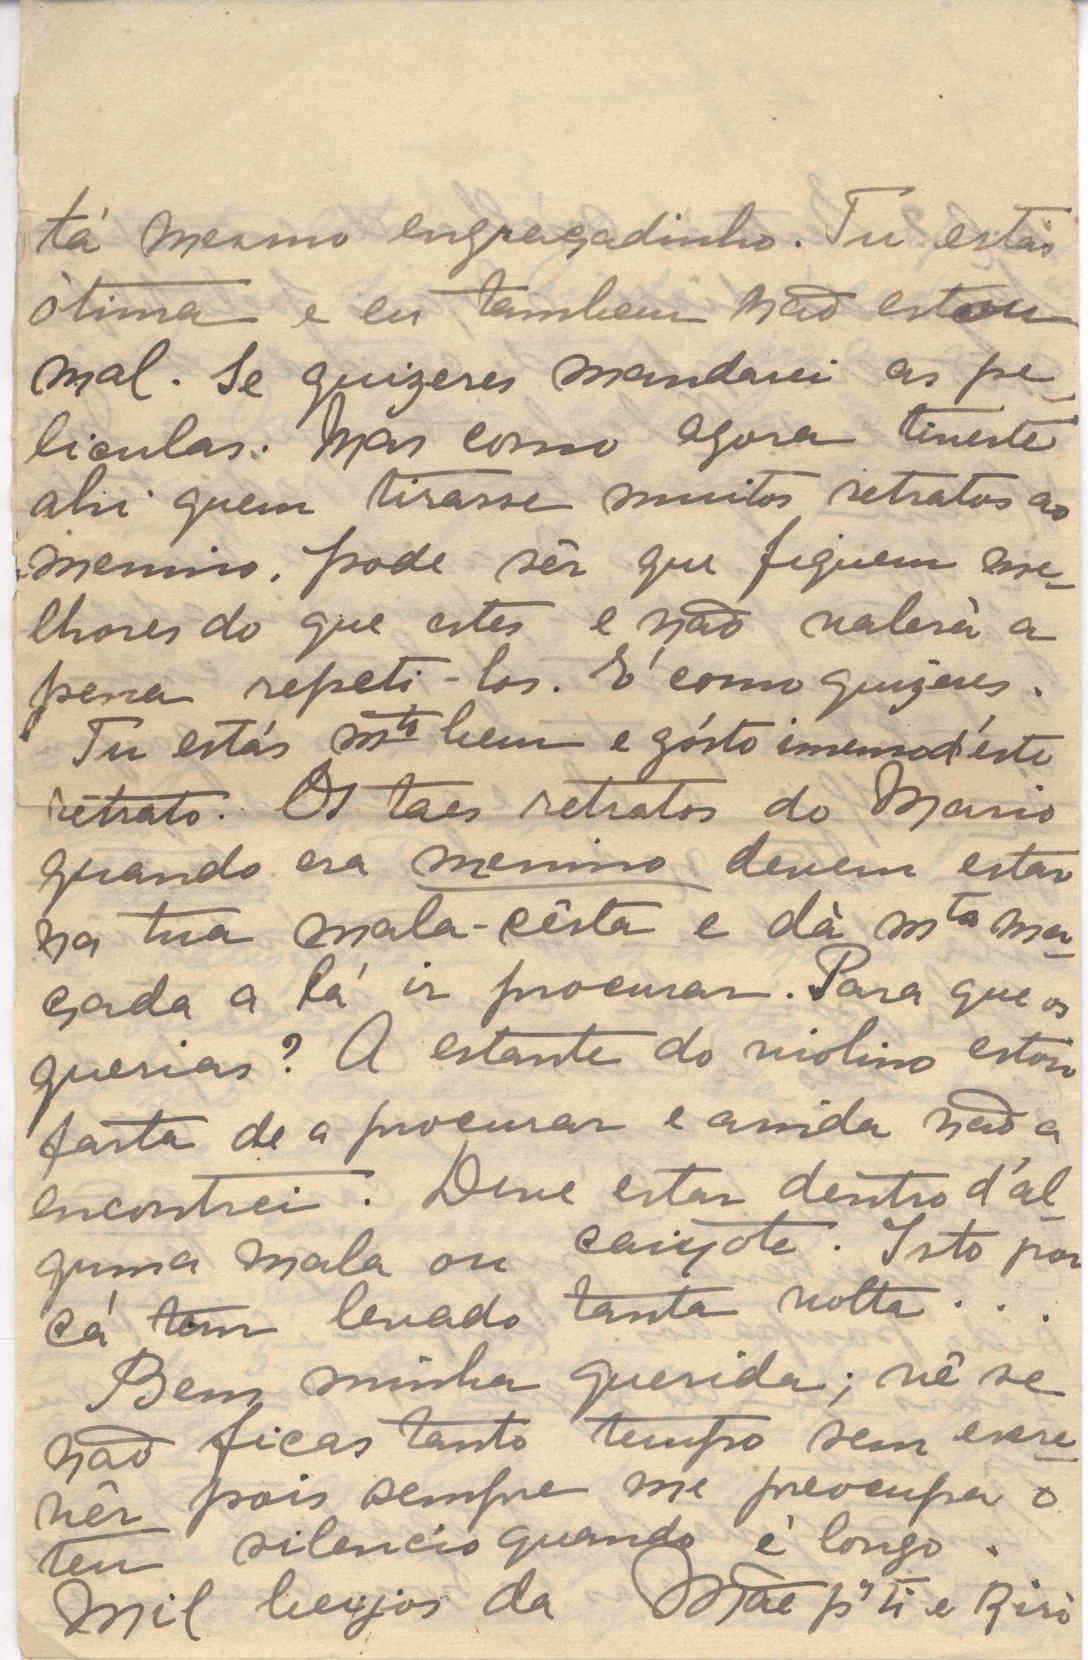 tá mesmo engraçadinho. Tu estás
òtima e eu tambem não estou
mal. Se quizeres mandarei as pe-
liculas. Mas como agora tiveste
ahi quem tirasse muitos retratos ao
menino, pode sêr que fiquem me-
lhores do que estes e não valerà a
pena repeti-los. É como quizeres.
Tu estás mto bem e gósto imenso d'éste
retrato. Os taes retratos do Mario
quando era menino devem estar
na tua mala-cêsta e dà mta ma-
çada a lá ir procurar. Para que os
querias? A estante do violino estou
farta de a procurar e ainda não a
encontrei. Deve estar dentro d'al-
guma mala ou caixote. Isto por
cá tem levado tanta volta...
Bem minha querida; vê se
não ficas tanto tempo sem escre-
vêr pois sempre me preocupa o
teu silencio quando è longo.
Mil beijos da Mãe pa ti e